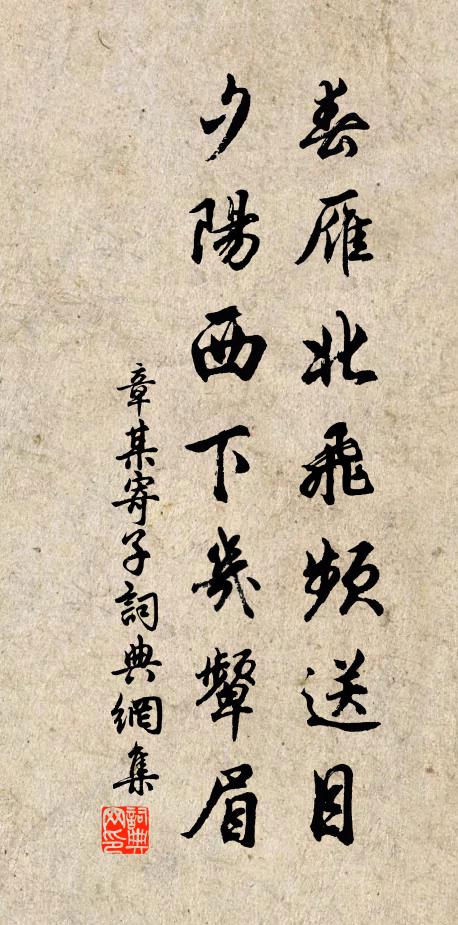 春雁北飛頻送目
夕陽西下幾顰眉
章某寄子詞典網集
詞典網印